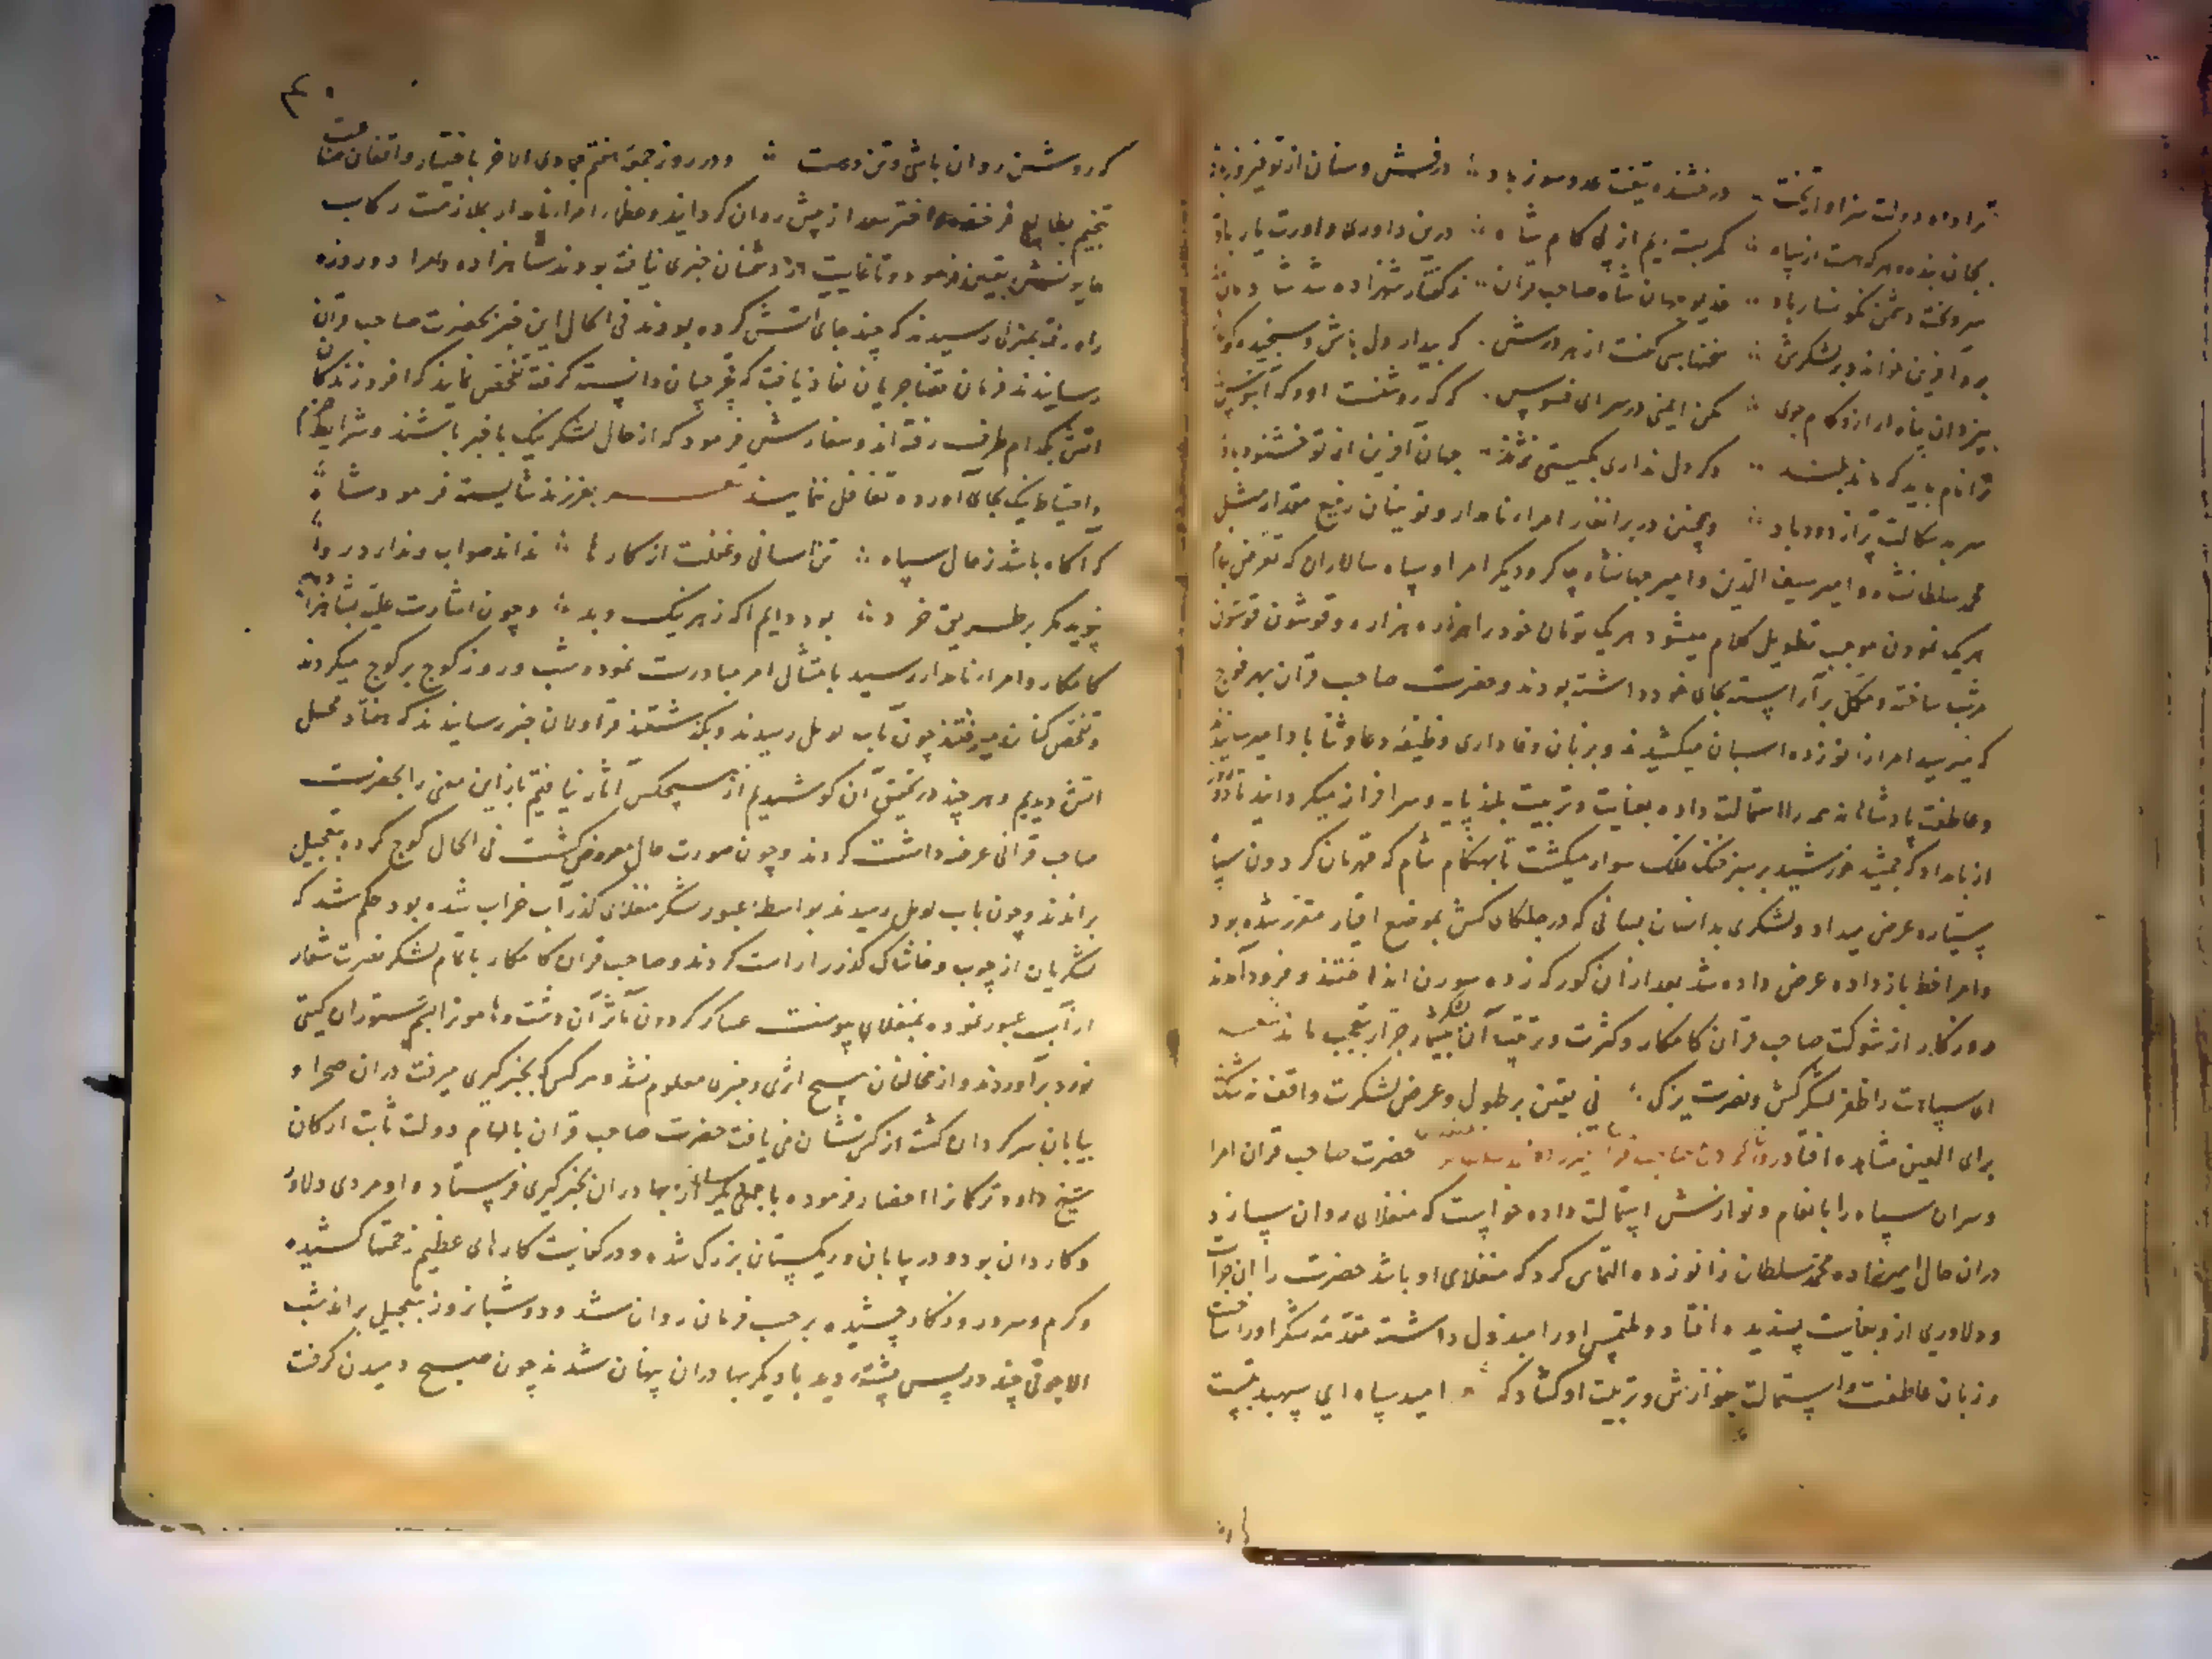 ترا داد دولت سزاوار تخت درفشنده تیغت عدوسوز باد درفش و سنان از تو فیروز باد
بجان بنده هرکه هست از سپاه کمر بسته‌ایم از پی کام شاه درین داوری داورت یار باد
سر و تخت دشمن نگونسار باد خدیو جهان شاه صاحب قران ز گفتار شهزاده شد شادمان
برو آفرین خواند و بر لشکرش سخنها بسی گفت از هر درش که بیدار دل باش و سنجیده گوی
بیزدان پناه آر ازو کام جوی مکن ایمنی در سرای فسوس
ترا نام باید که ماند بلند دگر دل نداری بگیتی نژند جهان آفرین از تو خشنود باد
سر بدسکالت پر از دود باد و همچنین در برانغار امراء نامدار و نوینان رفیع مقدار مثل
محمد سلطانشاه و امیر سیف الدین و امیر جهانشاه چاکو و دیگر امرا و سپاه سالاران که تعرض بنام
هر یک نمودن موجب تطویل کلام میشود هر یک تومان خود را هزاره هزاره و قوشون قوشون
مرتب ساخته و مکمل برآراسته بجای خود داشته بودند و حضرت صاحب قران بهر فوج
که میرسید امرا زانو زده اسبان میکشیدند و بزبان وفاداری وظیفه دعا و ثنا بادا میرسانیدند
و عاطفت پادشاهانه همه را استمالت داده بعنایت و تربیت بلند پایه و سرافراز میگردانید تا دو روز
از بامداد که جمشید خورشید بر سبز خنک فلک سوار میگشت تا بهنگام شام که قهرمان گردون سپاه
ستاره عرض میداد و لشکری بدانسان بسانی که در جلگای کش بموضع اقیار مقرر شده بود
و امرا خط بازداده عرض داده شد بعد از آن کورکه زده سورن انداختند و فرود آمدند
روزکار از شوکت صاحب قران کامکار و کثرت و ترتیب آن لشکر بیشمار جرار بتعجب ماند
ای سپاهت را ظفر لشکرکش و نصرت یزک نی یقین بر طول و عرض لشکرت واقف نه شک
برای العین مشاهده افتاد حضرت صاحب قران امرا
و سران سپاه را بانعام و نوازش استمالت داده خواست که منغلای روان سازد
در آن حال امیرزاده محمد سلطان زانو زده التماس کرد که منغلای او باشد حضرت را آن جرأت
و دلاوری ازو بغایت پسندیده افتاد و ملتمس او را مبذول داشته مقدمه لشکر او را ساخت
و زبان عاطفت و استمالت بنوازش و تربیت او کشاد که امید سپاه ای سپهبد بتست
که روشن روان باشی و تن درست و در روز جمعه هفتم جمادی الآخر باختیار واقفان صناعت
تنجیم بطالع فرخنده اختر سعد از پیش روان گردانید و عظام امراء نامدار بملازمت رکاب
همایونش تعیین فرمود و تا غایت از دشمنان خبری نیافته بودند شاهزاده و امرا دو روزه
راه رفته بمنزلی رسیدند که چند جای آتش کرده بودند فی الحال این خبر بحضرت صاحب قران
رسانیدند فرمان قضا جریان نفاذ یافت که غجرچیان دانسته گرفته تفحص نمایند که افروزندگان
آتش بکدام طرف رفته‌اند و سفارش فرمود که از حال لشکر نیک باخبر باشند و شرایط حزم
و احتیاط نیک بجای آورده تغافل ننمایند بفرزند شایسته فرمود شاه
که آگاه باشد ز حال سپاه تن آسانی و غفلت از کارها نداند صواب و ندارد روا
نپوید مگر بر طریق خرد بود دایم آگه ز هر نیک و بد و چون اشارت علیه بشاهزاده
کامکار و امراء نامدار رسید بامتثال امر مبادرت نموده شب و روز کوچ بر کوچ میکردند
و تفحص کنان میرفتند چون بآب توبل رسیدند و بگذشتند قراولان خبر رسانیدند که هفتاد محل
آتش دیدیم و هر چند در تحقیق آن کوشیدیم از هیچکس آثار نیافتیم باز این معنی را بحضرت
صاحب قرانی عرضه داشت کردند و چون صورت حال معروض گشت فی الحال کوچ کرده بتعجیل
براندند و چون بآب توبل رسیدند بواسطه عبور لشکر منغلای گذر آب خراب شده بود حکم شد که
لشکریان از چوب و خاشاک گذر را راست کردند و صاحب قران کامکار با تمام لشکر نصرت شعار
از آب عبور نموده بمنغلای پیوست عساکر گردون مآثر آن دشت و هامون را بسم ستوران گیتی
نورد برآوردند و از مخالفان هیچ اثری و خبری معلوم نشد و هر کس که بخبرگیری میرفت در آن صحرا و
بیابان سرگردان گشته از کس نشان نمی‌یافت حضرت صاحب قران بالهام دولت ثابت ارکان
شیخ داود ترکمان را احضار فرموده با جمعی از بهادران بخبرگیری فرستاد و او مردی دلاور
و کاردان بود و در بیابان و ریگستان بزرگ شده و در کفایت کارهای عظیم زحمتها کشیده
و گرم و سرد روزکار چشیده بر حسب فرمان روان شد و دو شبانروز بتعجیل براند شب
الاچوقی چند در پس پشته دید با دیگر بهادران پنهان شدند چون صبح دمیدن گرفت